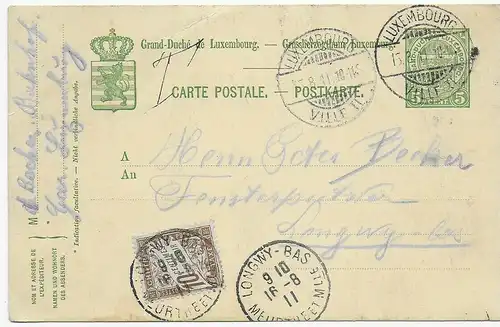 Grand-Duché de Luxembourg. - Grossherzogtum Luxemburg.
T
CARTE POSTALE. - POSTKARTE.
LUXEMBOURG
VILLE
LUXEMBOURG
VILLE
5 5
A
An
Herrn
Becker
Fensterputzer
Longwy-bas
M
Becker Bahnhof
Luxemburg
* Indication facultative. - Nicht verbindliche Angabe.
NOM ET ADRESSE DE
L'EXPÉDITEUR.
NAMEN UND WOHNORT
DES ABSENDERS.
10
LONGWY-BAS
9 10
16-8
11
LONGWY-BAS
9 10
16-8
11
MEURTHE ET MLLE